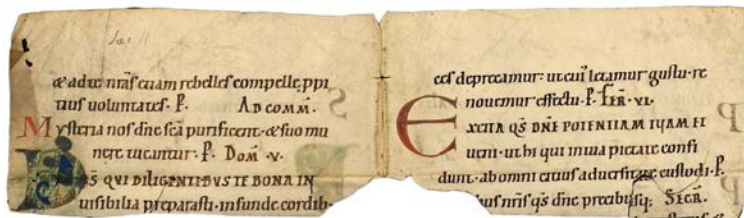 & ad te nr̄as etiam rebelles compelle ppi
tius voluntates. P. AD COMM̄.
Mysteria nos dn̄e sc̄a purificent. & suo mu
nere tueantur. P. DOM̄. V.
DS QUI DILIGENTIBVS TE BONA IN
uisibilia preparasti. infunde cordib.
ces deprecamur: ut cui letamur gustu. re
nouemur effectu. P. FER̄. VI.
EXCITA QS̄ DN̄E POTENTIAM TUAM ET
ueni. ut hi qui in tua pietate confi
dunt. ab omni citius aduersitate custodi. P.
nr̄is qs̄ dn̄e precibusq; SECR̄.